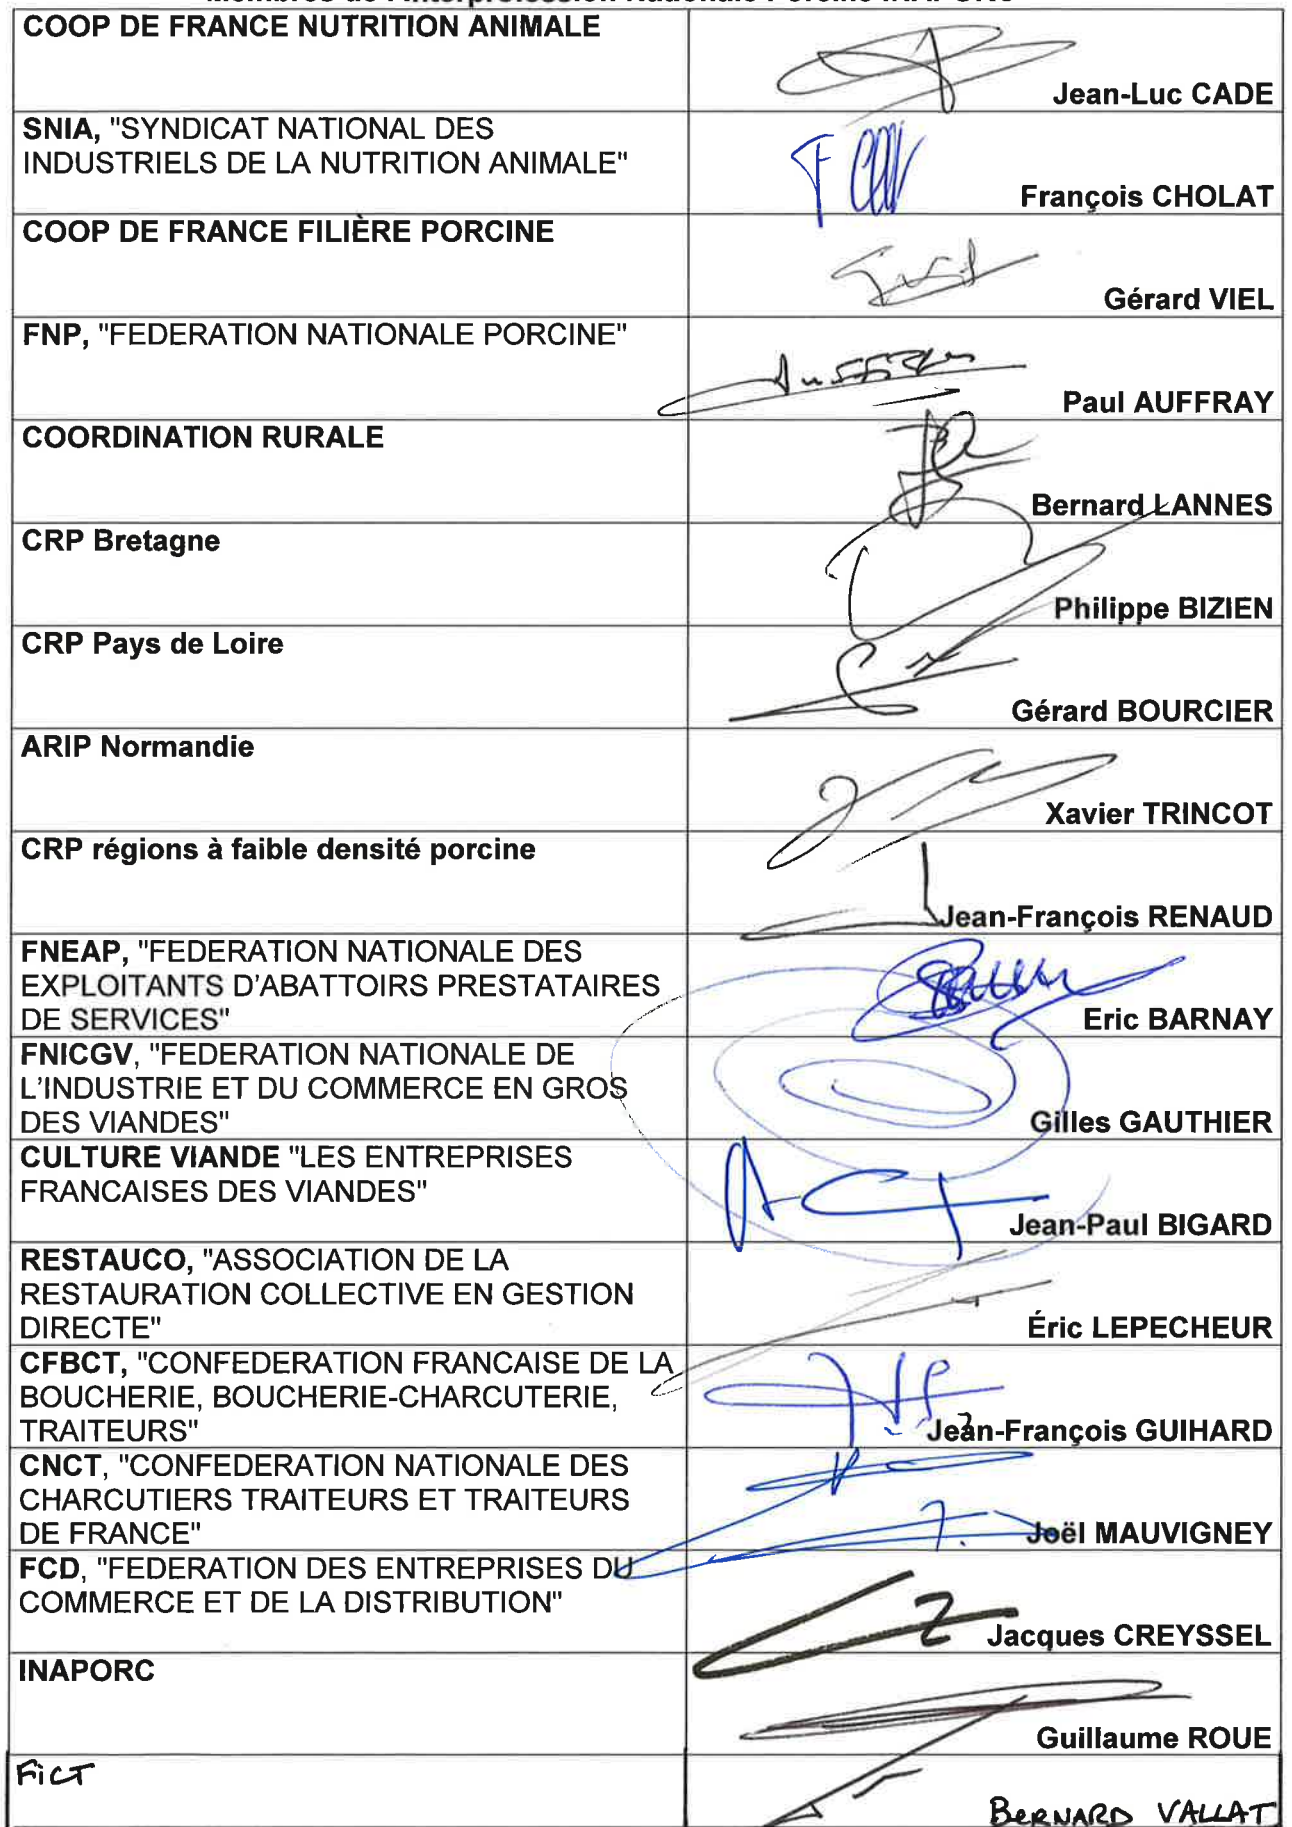 Membres de l'Interprofession Nationale Porcine INAPORC
COOP DE FRANCE NUTRITION ANIMALE
Jean-Luc CADE
SNIA, "SYNDICAT NATIONAL DES
INDUSTRIELS DE LA NUTRITION ANIMALE"
François CHOLAT
COOP DE FRANCE FILIÈRE PORCINE
Gérard VIEL
FNP, "FEDERATION NATIONALE PORCINE"
Paul AUFFRAY
COORDINATION RURALE
Bernard LANNES
CRP Bretagne
Philippe BIZIEN
CRP Pays de Loire
Gérard BOURCIER
ARIP Normandie
Xavier TRINCOT
CRP régions à faible densité porcine
Jean-François RENAUD
FNEAP, "FEDERATION NATIONALE DES
EXPLOITANTS D'ABATTOIRS PRESTATAIRES
DE SERVICES"
Eric BARNAY
FNICGV, "FEDERATION NATIONALE DE
L'INDUSTRIE ET DU COMMERCE EN GROS
DES VIANDES"
Gilles GAUTHIER
CULTURE VIANDE "LES ENTREPRISES
FRANCAISES DES VIANDES"
Jean-Paul BIGARD
RESTAUCO, "ASSOCIATION DE LA
RESTAURATION COLLECTIVE EN GESTION
DIRECTE"
Éric LEPECHEUR
CFBCT, "CONFEDERATION FRANCAISE DE LA
BOUCHERIE, BOUCHERIE-CHARCUTERIE,
TRAITEURS"
Jean-François GUIHARD
CNCT, "CONFEDERATION NATIONALE DES
CHARCUTIERS TRAITEURS ET TRAITEURS
DE FRANCE"
Joël MAUVIGNEY
FCD, "FEDERATION DES ENTREPRISES DU
COMMERCE ET DE LA DISTRIBUTION"
Jacques CREYSSEL
INAPORC
Guillaume ROUE
FiCT
BERNARD VALLAT